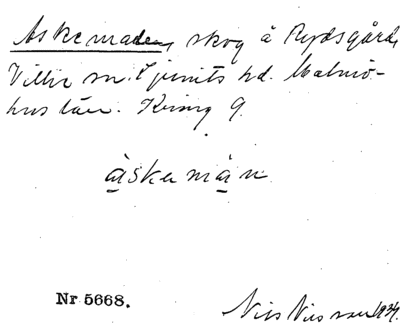 Askemaden, skog å Rydsgård,
Villie sn. Ljunits hd. Malmö-
hus län. Kring 9.
åskemån
Nr 5668.
Nils Nilsson 1934.